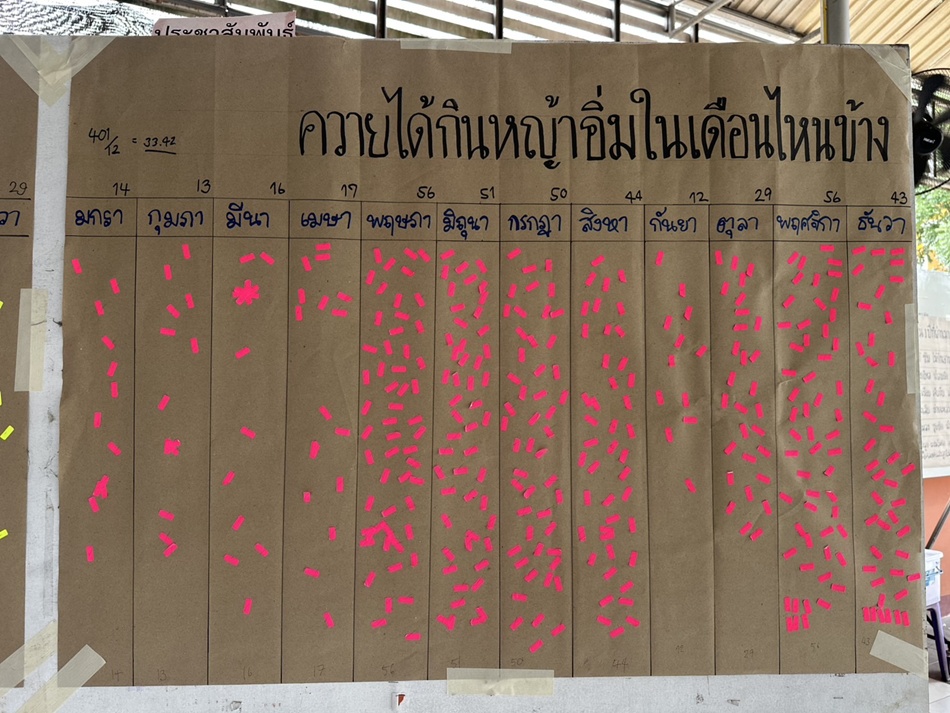 ประชาสัมพันธ์
ควายได้กินหญ้าอิ่มในเดือนไหนบ้าง
401/12 = 33.42
29 14 13 16 17 56 51 50 44 12 29 56 43
วา มกรา กุมภา มีนา เมษา พฤษภา มิถุนา กรกฎา สิงหา กันยา ตุลา พฤศจิกา ธันวา
14 13 16 17 56 51 50 44 12 29 56 43